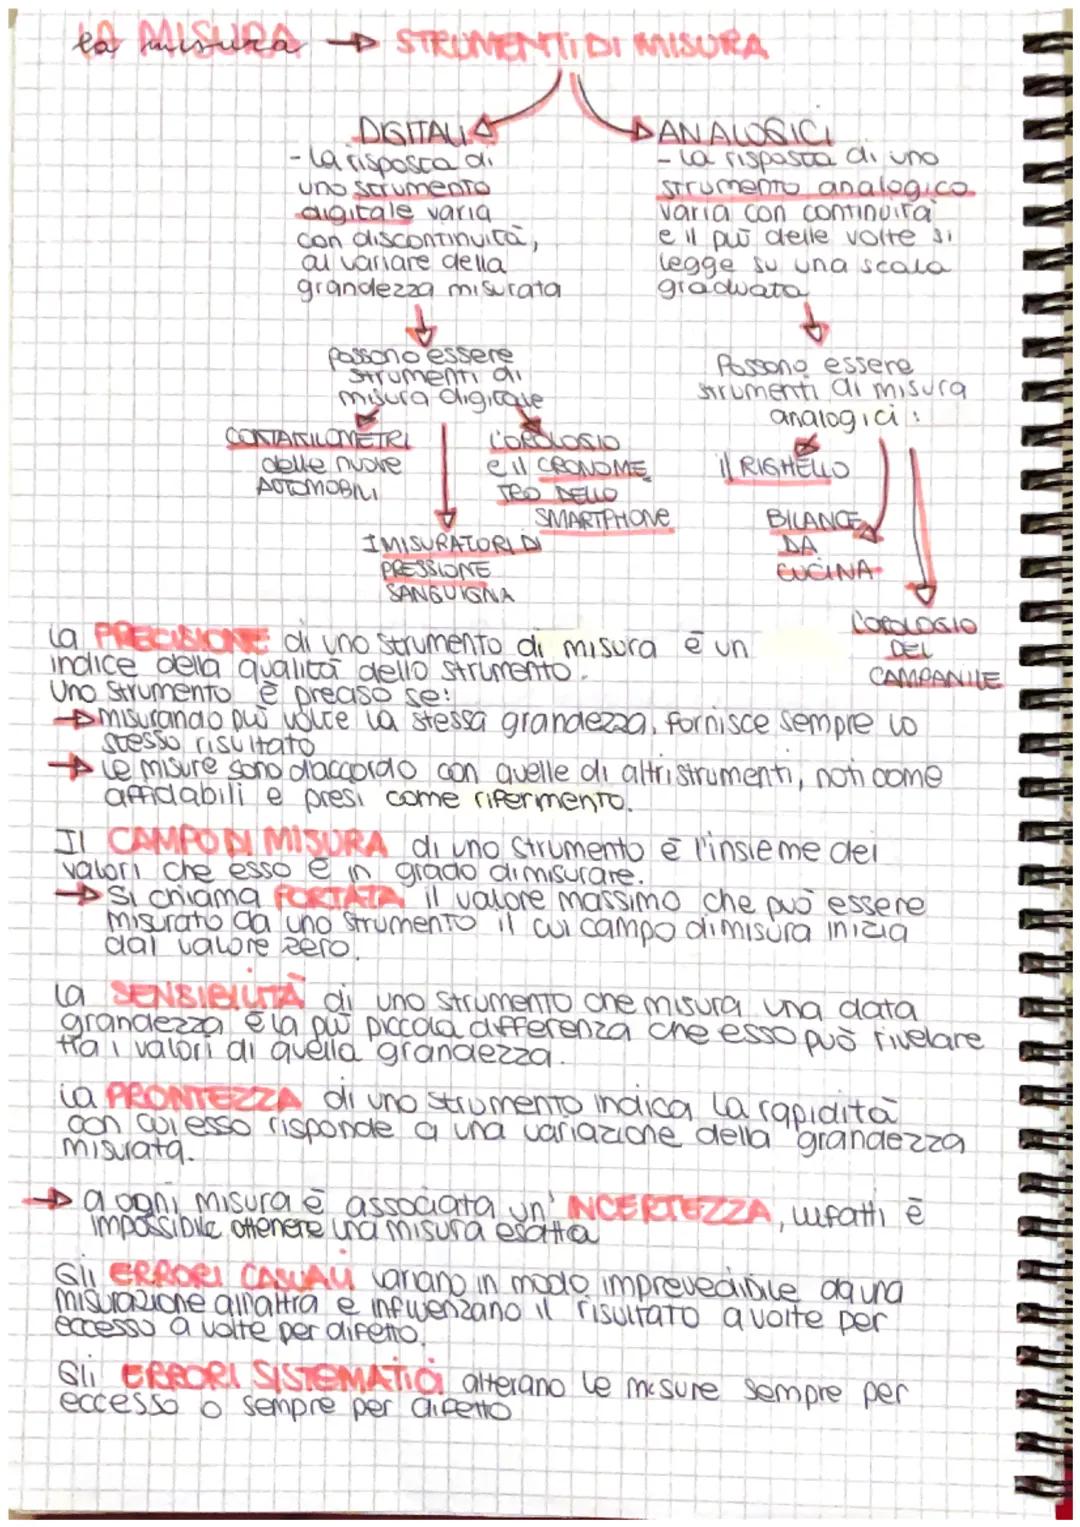 la misura → STRUMENTI DI MISURA
DIGITALI
- La risposta di
uno strumento
digitale varia
con discontinuità,
al variare della
grandezza misurata
ANALOGICI
- La risposta di uno
strumento analogico
varia con continuità
e il più delle volte si
legge su una scala
graduata
possono essere
strumenti di
misura digitale
CONTAKILOMETRI
delle nuove
AUTOMOBILI
I MISURATORI DI
PRESSIONE
SANGUIGNA
L'OROLOGIO
e il CRONOME
TRO DELLO
SMARTPHONE
Possono essere
strumenti di misura
analogici:
il RIGHELLO
BILANCE
DA
CUCINA
L'OROLOGIO
DEL
CAMPANILE
La PRECISIONE di uno strumento di misura è un
indice della qualità dello strumento.
Uno strumento è preciso se:
→ misurando più volte la stessa grandezza, fornisce sempre lo
stesso risultato
→ Le misure sono d'accordo con quelle di altri strumenti, noti come
affidabili e presi come rifermento.
Il CAMPO DI MISURA di uno strumento è l'insieme dei
valori che esso è in grado di misurare.
→ Si chiama PORTATA il valore massimo che può essere
misurato da uno strumento il cui campo di misura inizia
dal valore zero.
La SENSIBILITÀ di uno strumento che misura una data
grandezza è la più piccola differenza che esso può rivelare
tra i valori di quella grandezza.
La PRONTEZZA di uno strumento indica la rapidità
con cui esso risponde a una variazione della grandezza
misurata.
→ a ogni misura è associata un' INCERTEZZA, infatti è
impossibile ottenere una misura esatta
Gli ERRORI CASUALI variano in modo imprevedibile da una
misurazione all'altra e influenzano il risultato a volte per
eccesso a volte per difetto.
Gli ERRORI SISTEMATICI alterano le misure sempre per
eccesso o sempre per difetto